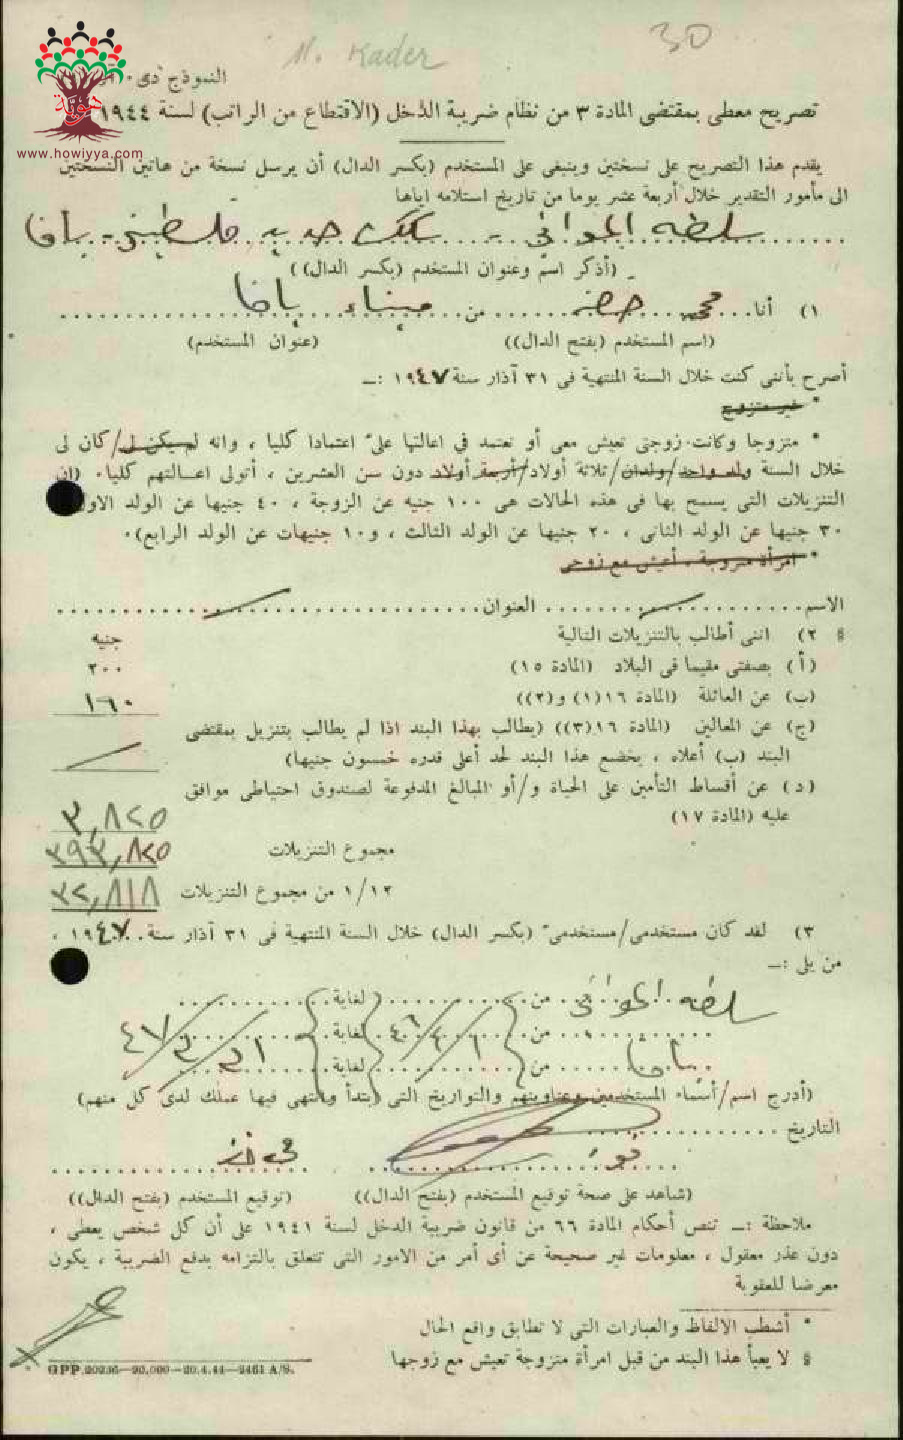 M. Kader
30
هوية
www.howiyya.com
النموذج دى٠
تصريح معطى بمقتضى المادة ٣ من نظام ضريبة الدخل (الاقتطاع من الراتب) لسنة ١٩٤٤
يقدم هذا التصريح على نسختين وينبغى على المستخدم (بكسر الدال) أن يرسل نسخة من هاتين النسختين
الى مأمور التقدير خلال أربعة عشر يوما من تاريخ استلامه اياها
سلطه الموانئ - سكك حديد فلسطين - يافا
(أذكر اسم وعنوان المستخدم (بكسر الدال))
١) أنا محمد خضر من ميناء يافا
(اسم المستخدم (بفتح الدال)) (عنوان المستخدم)
أصرح بأننى كنت خلال السنة المنتهية فى ٣١ آذار سنة ١٩٤٧ :ــ
* غير متزوج
* متزوجا وكانت زوجتى تعيش معى أو تعتمد فى اعالتها على اعتمادا كليا ، وانه لم يكن لى/كان لى
خلال السنة ولد واحد/ولدان/ثلاثة أولاد/أربعة أولاد دون سن العشرين ، أتولى اعالتهم كليا٠ (ان
التنزيلات التى يسمح بها فى هذه الحالات هى ١٠٠ جنيه عن الزوجة ، ٤٠ جنيها عن الولد الاول
٣٠ جنيها عن الولد الثانى ، ٢٠ جنيها عن الولد الثالث ، و١٠ جنيهات عن الولد الرابع)٠
* امرأة متزوجة ، أعيش مع زوجى
الاسم العنوان
§ ٢) اننى أطالب بالتنزيلات التالية جنيه
(أ) بصفتى مقيما فى البلاد (المادة ١٥) ٢٠٠
(ب) عن العائلة (المادة ١٦(١) و(٢)) ١٦٠
(ج) عن المعالين (المادة ١٦(٣)) (يطالب بهذا البند اذا لم يطالب بتنزيل بمقتضى
البند (ب) أعلاه ، يخضع هذا البند لحد أعلى قدره خمسون جنيها)
(د) عن أقساط التأمين على الحياة و/أو المبالغ المدفوعة لصندوق احتياطى موافق
عليه (المادة ١٧)
مجموع التنزيلات
١/١٢ من مجموع التنزيلات ٣٢,٨١٨
٣) لقد كان مستخدمى/مستخدمى (بكسر الدال) خلال السنة المنتهية فى ٣١ آذار سنة ١٩٤٧ ،
من يلى :ــ
سلطه الموانئ من لغاية
من ١/٤/٤٦ لغاية ٣١/٣/٤٧
يافا من لغاية
(أدرج اسم/أسماء المستخدمين وعناوينهم والتواريخ التى ابتدأ وانتهى فيها عملك لدى كل منهم)
التاريخ
(شاهد على صحة توقيع المستخدم (بفتح الدال)) (توقيع المستخدم (بفتح الدال))
ملاحظة :ــ تنص أحكام المادة ٦٦ من قانون ضريبة الدخل لسنة ١٩٤١ على أن كل شخص يعطى ،
دون عذر معقول ، معلومات غير صحيحة عن أى أمر من الامور التى تتعلق بالتزامه بدفع الضريبة ، يكون
معرضا للعقوبة
* أشطب الالفاظ والعبارات التى لا تطابق واقع الحال
§ لا يعبأ هذا البند من قبل امرأة متزوجة تعيش مع زوجها
GPP 20236—20,000—20.4.44—2461 A/S.